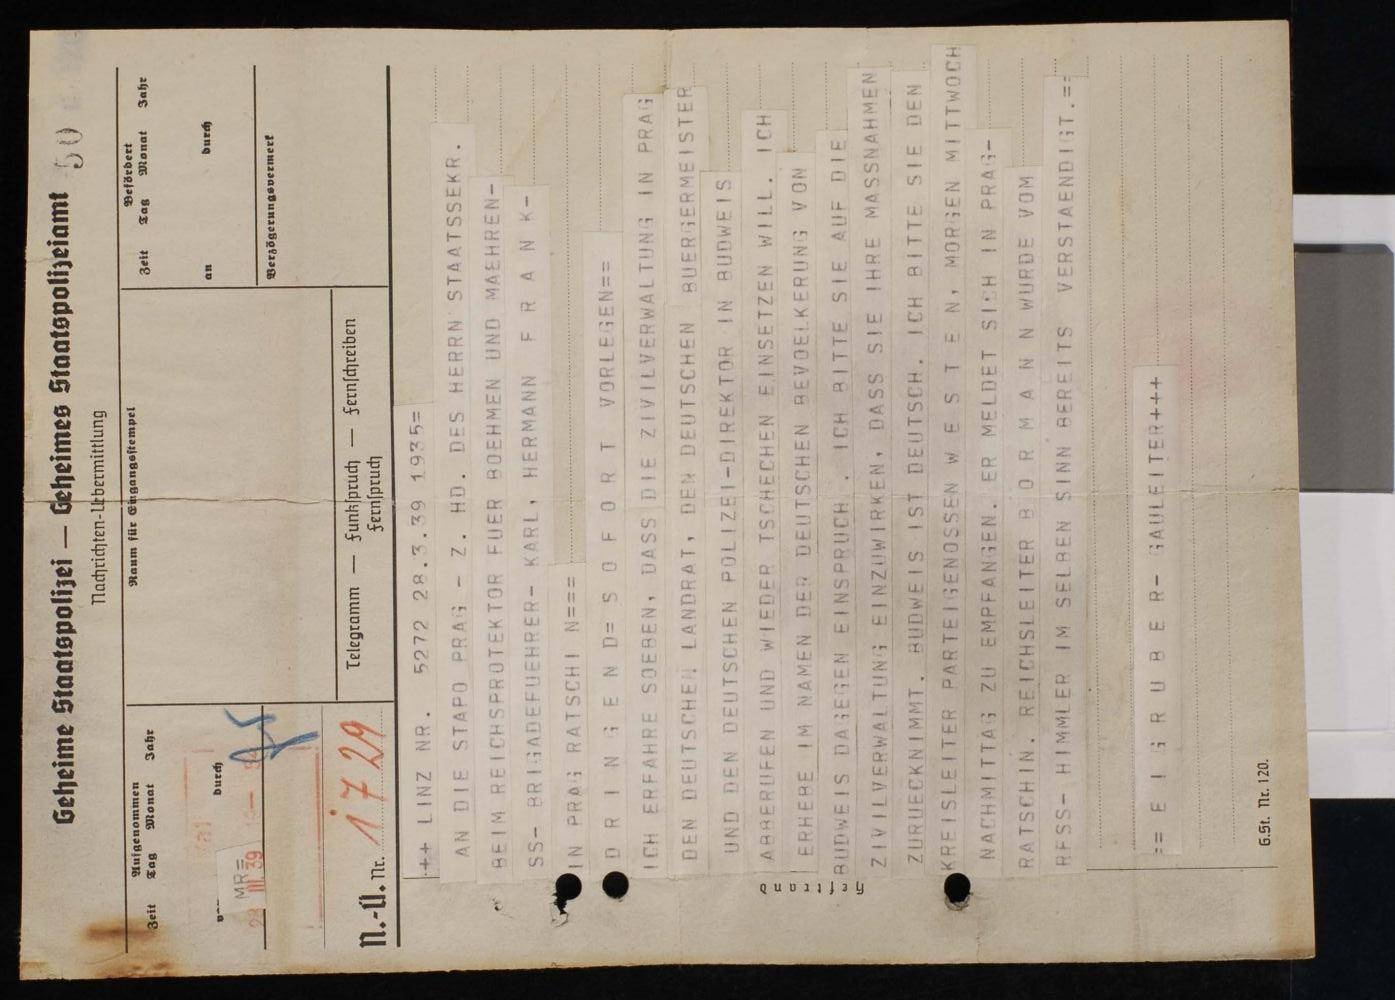 Geheime Staatspolizei — Geheimes Staatspolizeiamt
50
Nachrichten-Uebermittlung
Aufgenommen
Zeit Tag Monat Jahr
durch
MR=
28 III 39
Raum für Eingangsstempel
Befördert
Zeit Tag Monat Jahr
an durch
Verzögerungsvermerk
N.-Ü. Nr. 1729
Telegramm — Funkspruch — Fernschreiben
Fernspruch
++ LINZ NR. 5272 28.3.39 1935=
AN DIE STAPO PRAG - Z. HD. DES HERRN STAATSSEKR.
BEIM REICHSPROTEKTOR FUER BOEHMEN UND MAEHREN-
SS- BRIGADEFUEHRER- KARL, HERMANN F R A N K-
IN PRAG RATSCHI N===
D R I N G E N D= S O F O R T VORLEGEN==
ICH ERFAHRE SOEBEN, DASS DIE ZIVILVERWALTUNG IN PRAG
DEN DEUTSCHEN LANDRAT, DEN DEUTSCHEN BUERGERMEISTER
UND DEN DEUTSCHEN POLIZEI-DIREKTOR IN BUDWEIS
ABBERUFEN UND WIEDER TSCHECHEN EINSETZEN WILL. ICH
ERHEBE IM NAMEN DER DEUTSCHEN BEVOELKERUNG VON
BUDWEIS DAGEGEN EINSPRUCH. ICH BITTE SIE AUF DIE
ZIVILVERWALTUNG EINZUWIRKEN, DASS SIE IHRE MASSNAHMEN
ZURUECKNIMMT. BUDWEIS IST DEUTSCH. ICH BITTE SIE DEN
KREISLEITER PARTEIGENOSSEN W E S T E N, MORGEN MITTWOCH
NACHMITTAG ZU EMPFANGEN. ER MELDET SICH IN PRAG-
RATSCHIN. REICHSLEITER B O R M A N N WURDE VOM
RFSS- HIMMLER IM SELBEN SINN BEREITS VERSTAENDIGT.==
== E I G R U B E R- GAULEITER+++
Heftrand
G.St. Nr. 120.